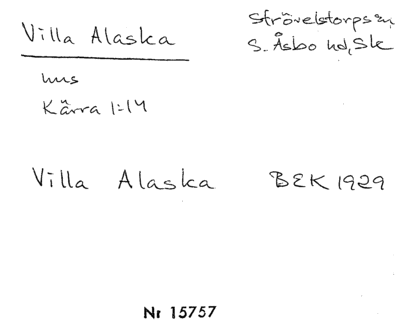 Villa Alaska
Strövelstorps sn,
S. Åsbo hd, Sk
hus
Kärra 1:14
Villa Alaska BEK 1929
Nr 15757